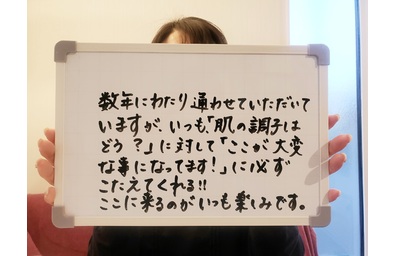 数年にわたり通わせていただいて
いますが、いつも、「肌の調子は
どう?」に対して「ここが大変
な事になってます!」に必ず
こたえてくれる!!
ここに来るのがいつも楽しみです。